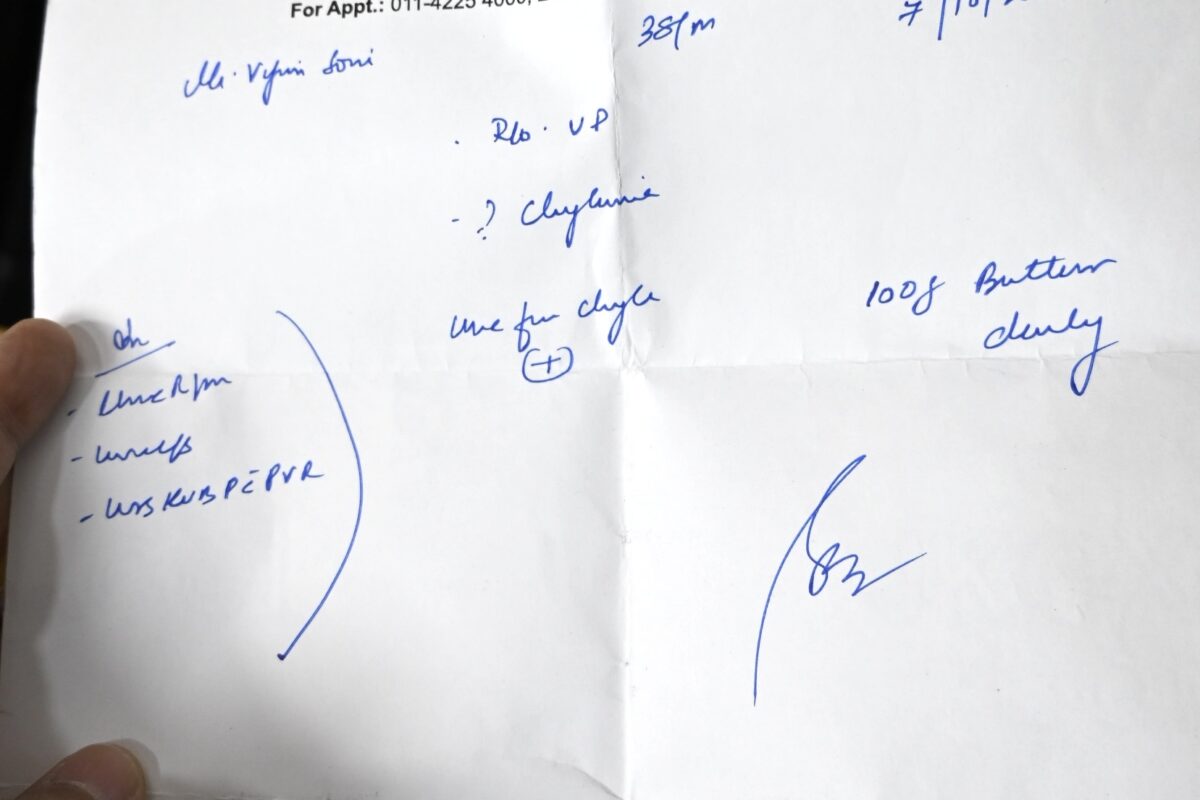 For Appt.: 011-4225 4000,
38/m
7/10/
Mr. Vipin Soni
. R/o. UP
- ? Chyluria
Urine for chyle
(+)
100g Butter
daily
- Urine R/m
- Urine c/s
- USG KUB P c̄ PVR